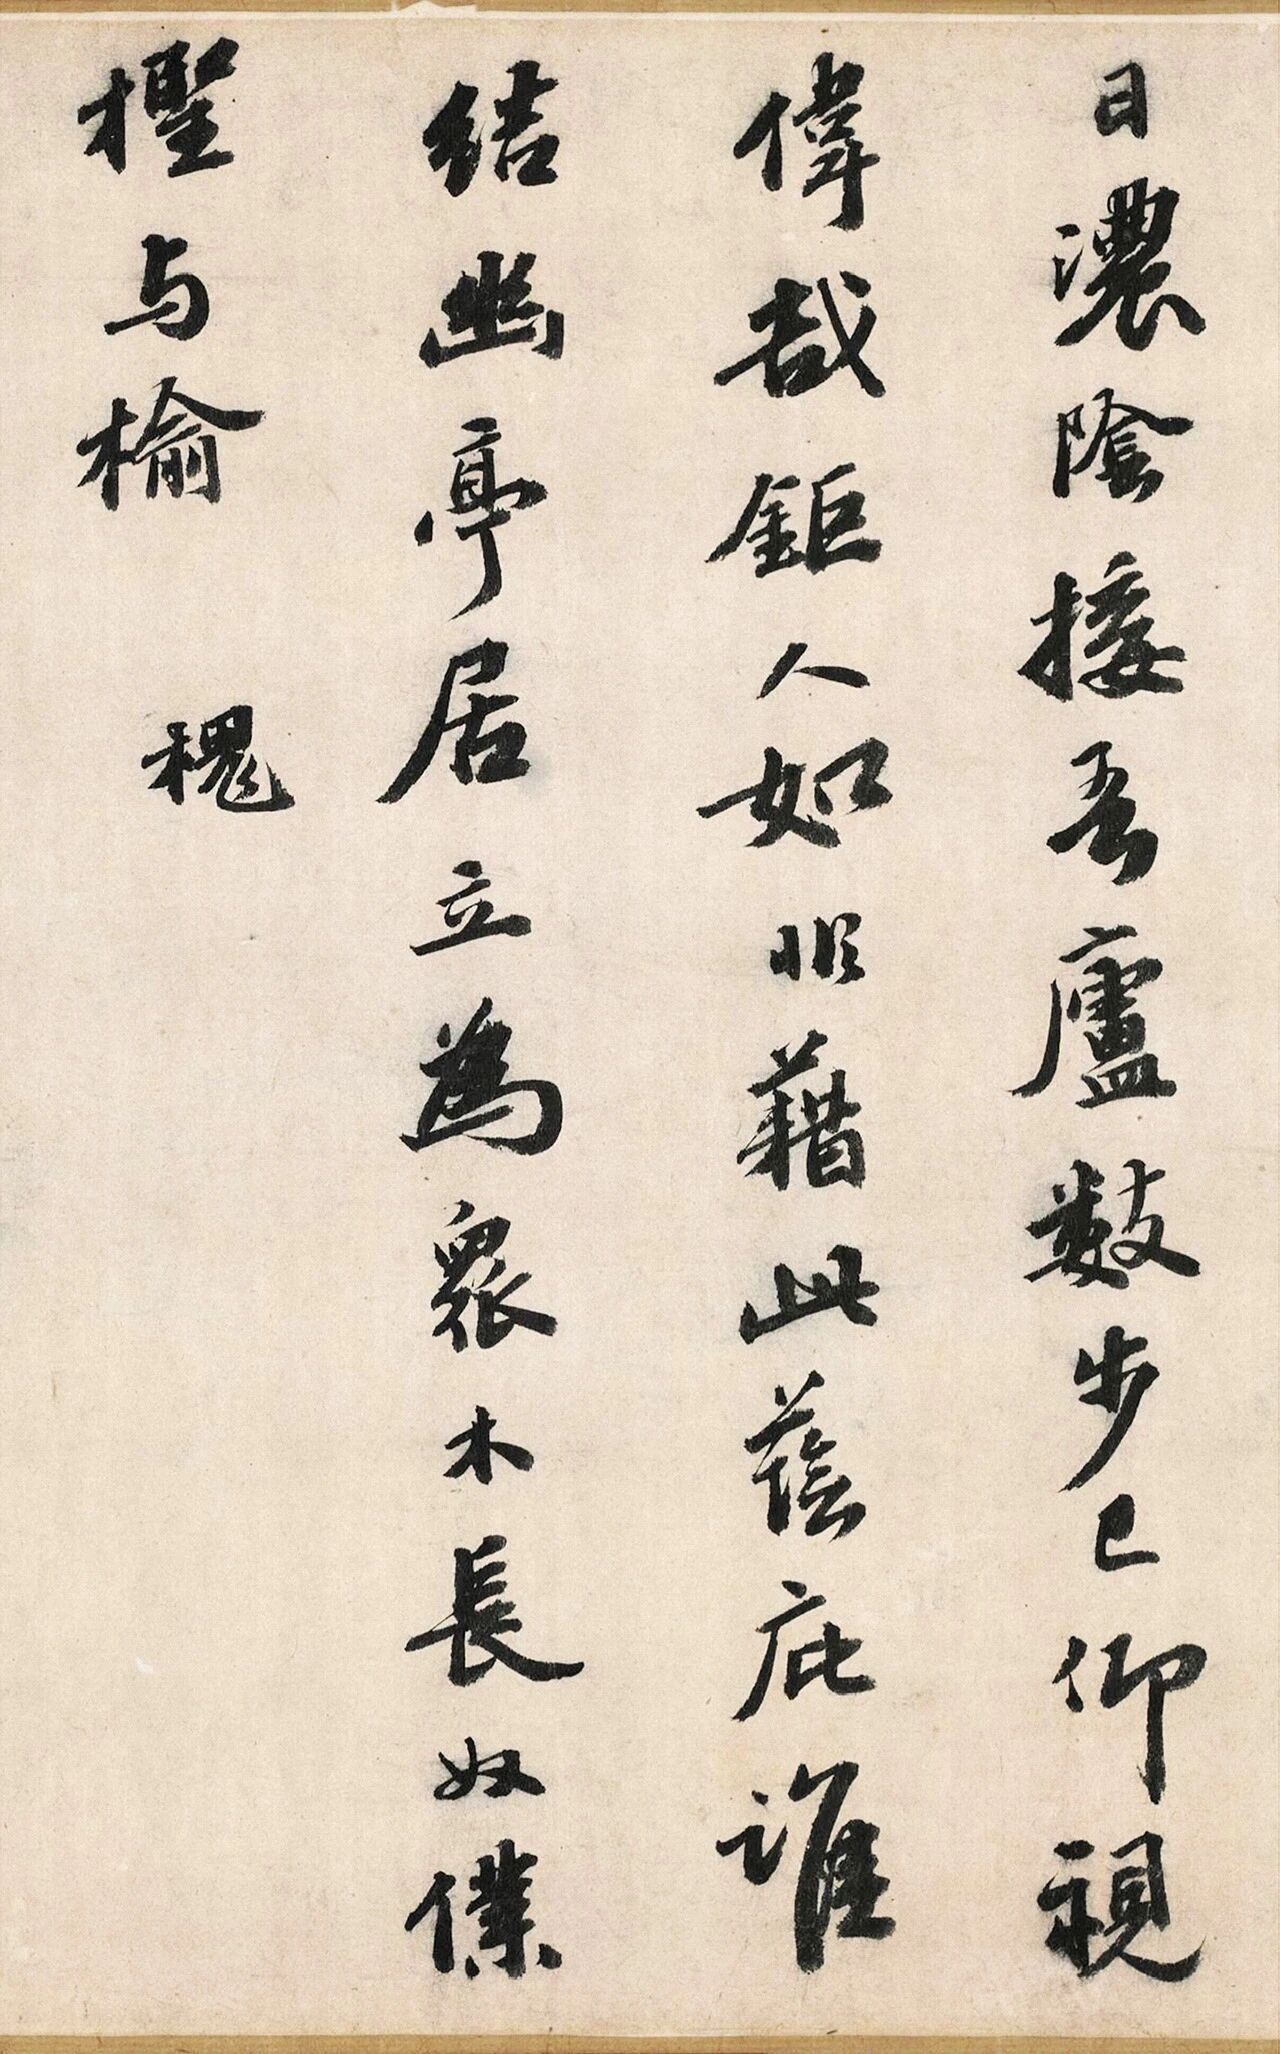 日濃陰接吾廬数步已仰視
偉哉鉅人如非藉此蔭庇誰
結幽亭居立為衆木長奴僕
檉与榆
槐